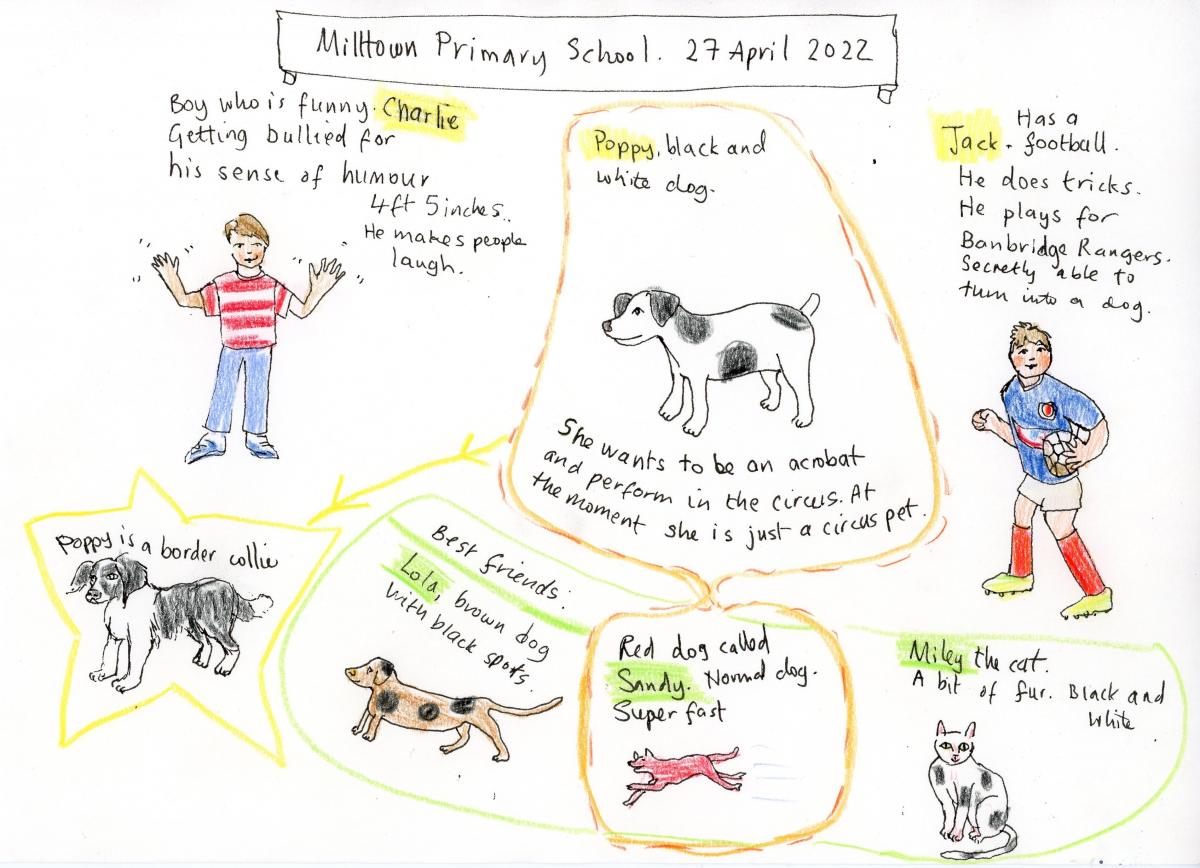 Milltown Primary School. 27 April 2022
Boy who is funny. Charlie
Getting bullied for
his sense of humour
4ft 5inches.
He makes people
laugh.
Poppy, black and
white dog.
She wants to be an acrobat
and perform in the circus. At
the moment she is just a circus pet.
Has a
Jack. football.
He does tricks.
He plays for
Banbridge Rangers.
Secretly able to
turn into a dog.
Poppy is a border collie
Best friends.
Lola, brown dog
with black spots.
Red dog called
Sandy. Normal dog.
Super fast
Miley the cat.
A bit of fur. Black and
white